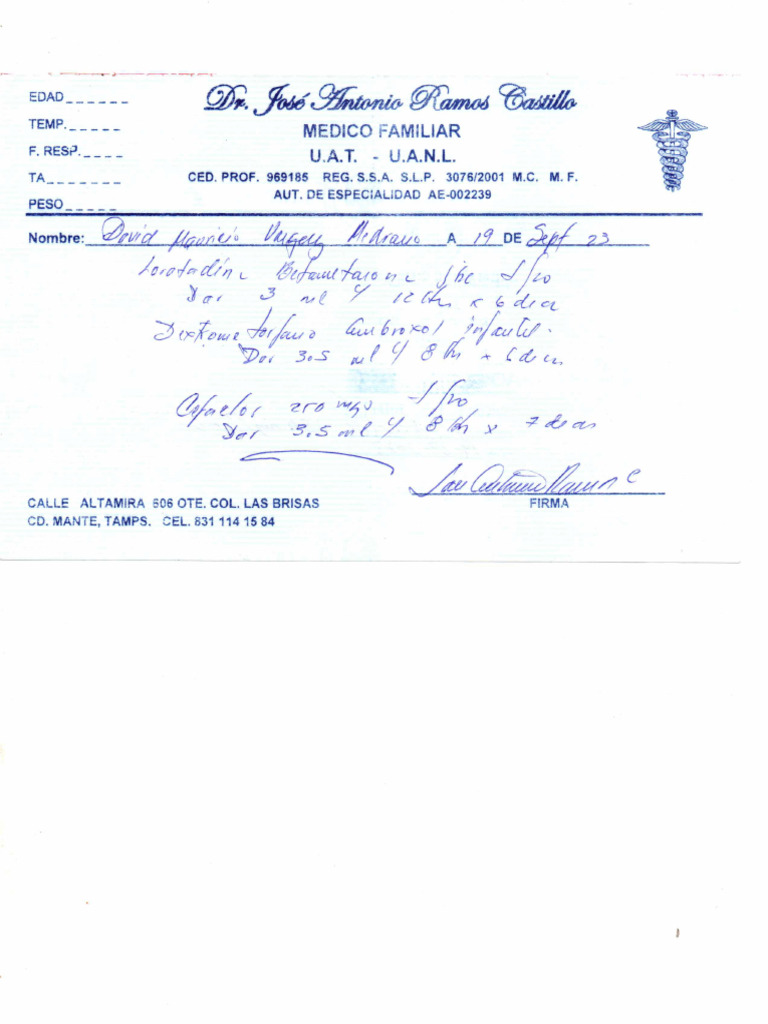 EDAD______
Dr. José Antonio Ramos Castillo
TEMP._____
MEDICO FAMILIAR
F. RESP.____
U.A.T. - U.A.N.L.
TA_______
CED. PROF. 969185 REG. S.S.A. S.L.P. 3076/2001 M.C. M. F.
AUT. DE ESPECIALIDAD AE-002239
PESO_____
Nombre: David Mauricio Medrano A 19 DE Sept 23
Loratadina Betametasona
Dar 3 ml c/ 12 hs x 6 dias
Dextrometorfano Ambroxol infantil.
Dar 3.5 ml c/ 8 hs x 6 dias
Cefaclor 250 mgs
Dar 3.5 ml c/ 8 hs x 7 dias
FIRMA
CALLE ALTAMIRA 606 OTE. COL. LAS BRISAS
CD. MANTE, TAMPS. CEL. 831 114 15 84